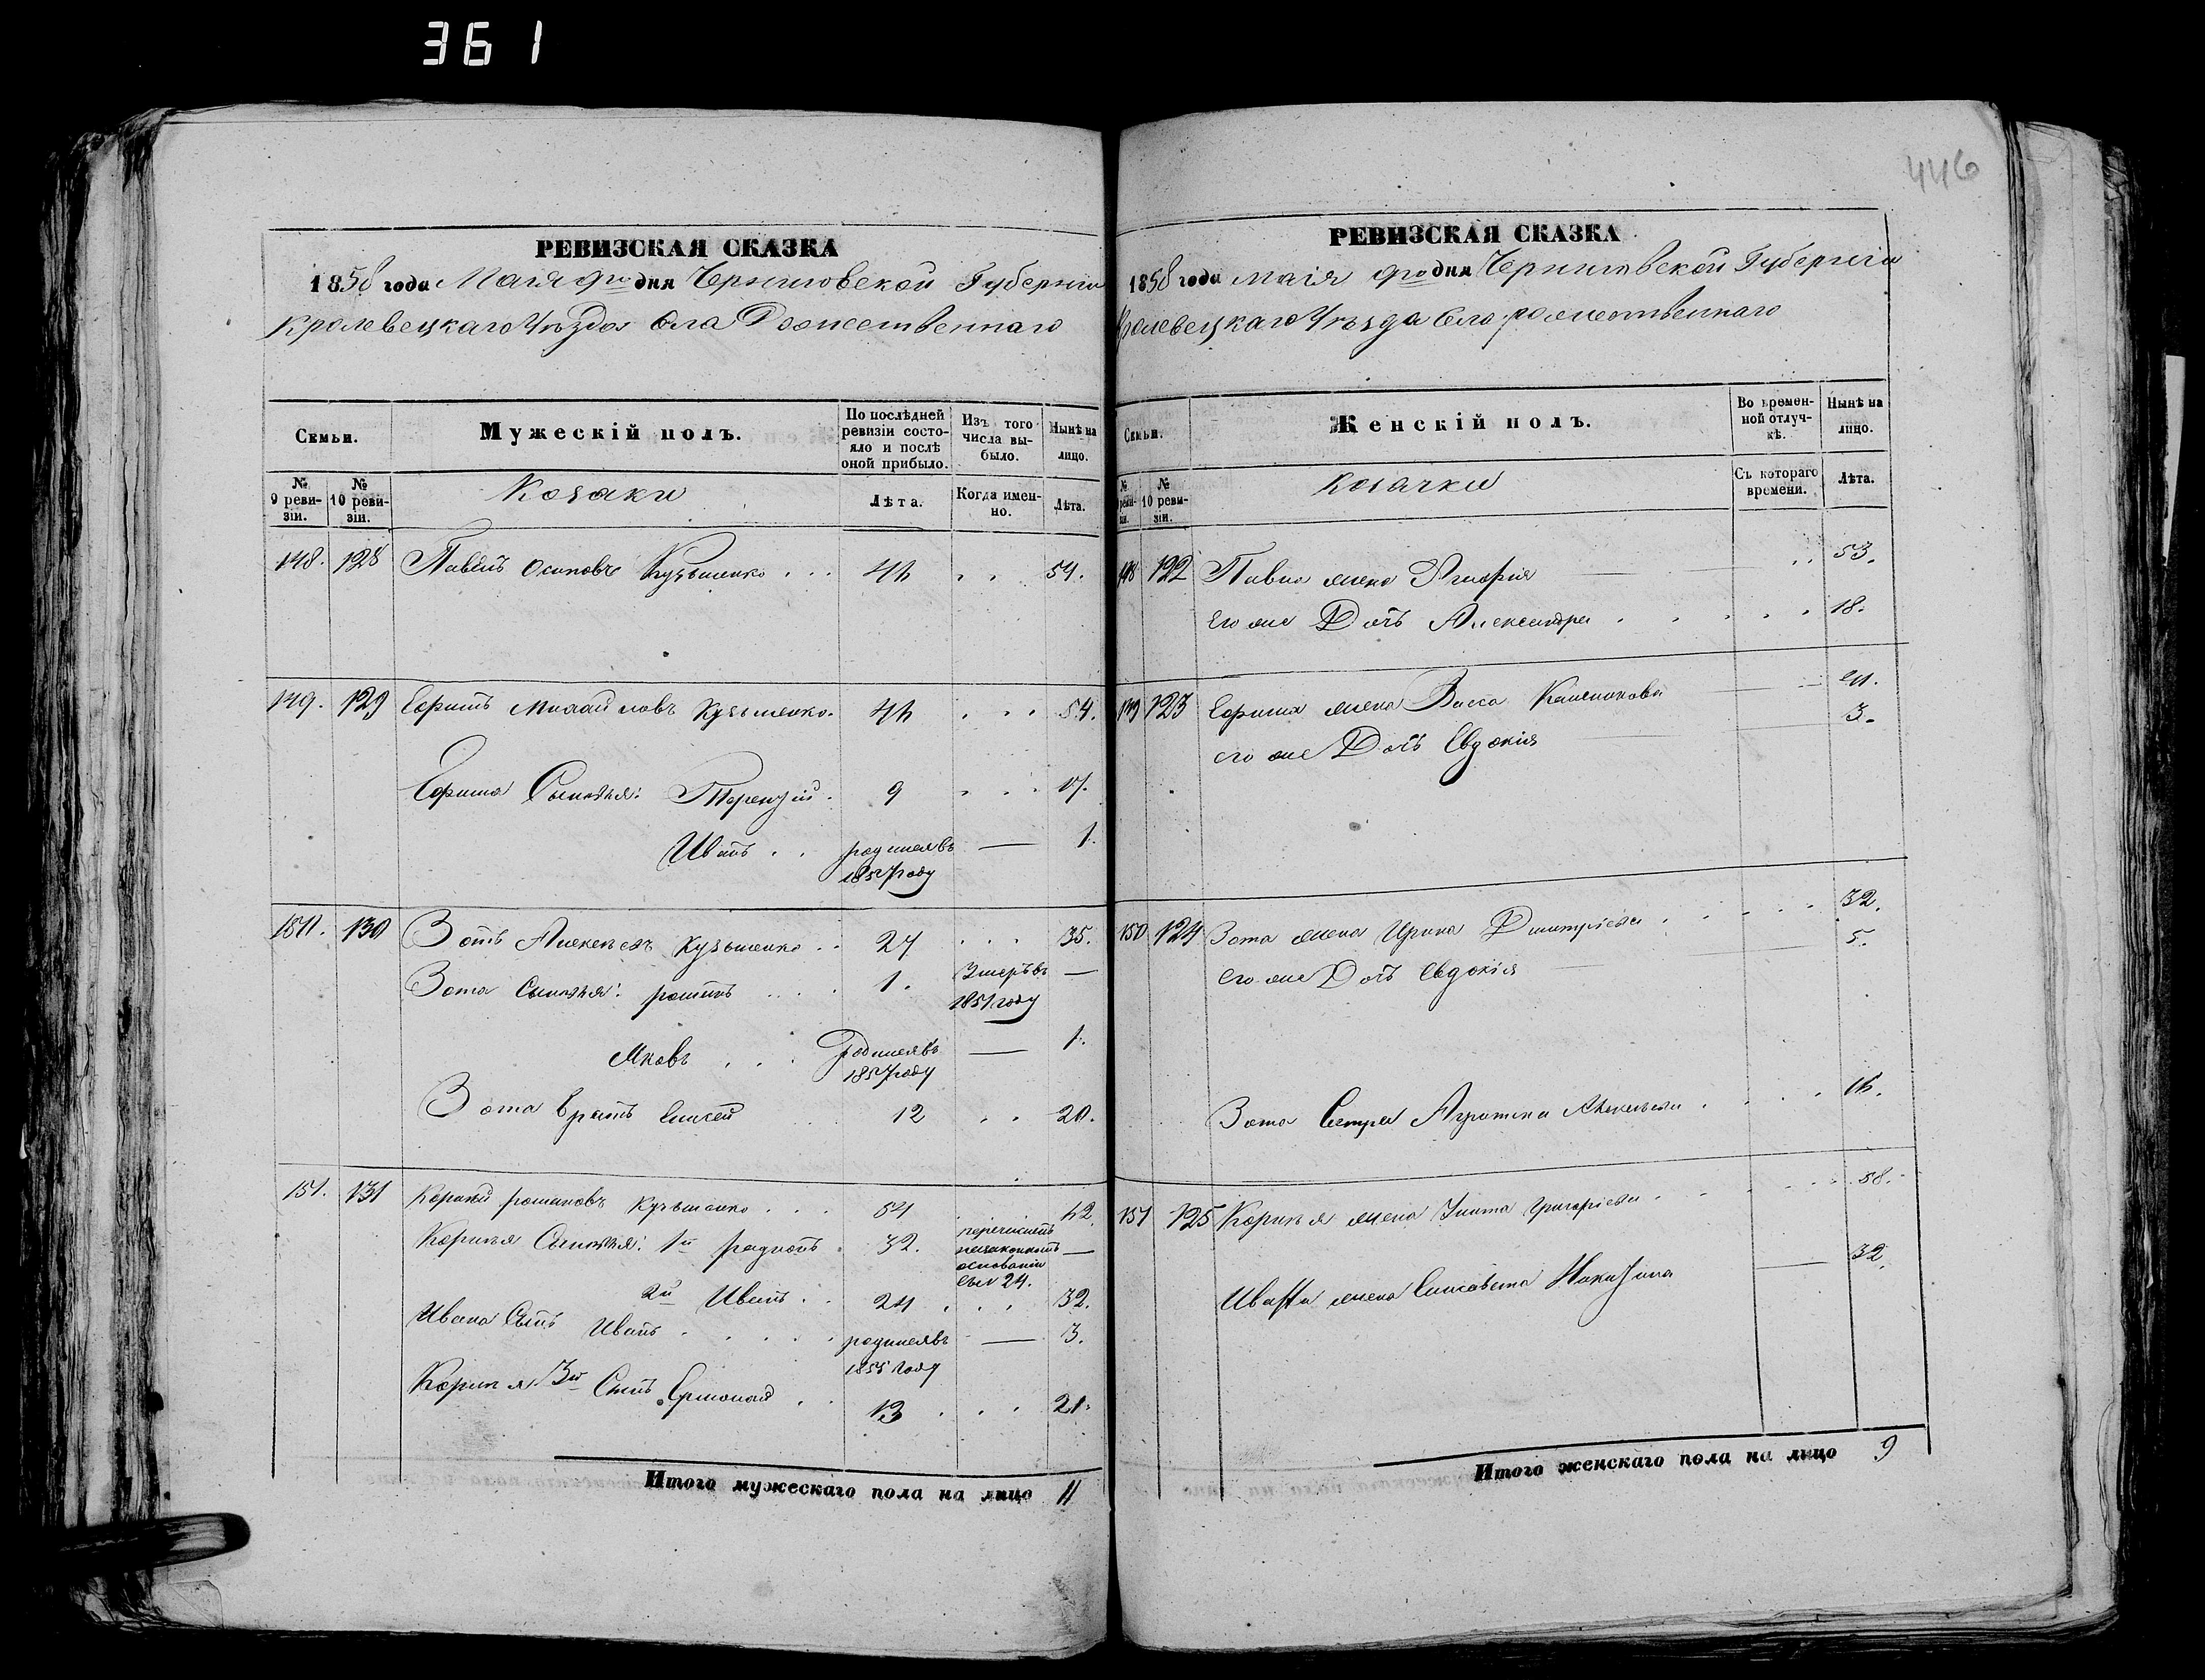 361
446
РЕВИЗСКАЯ СКАЗКА
1858 года Маія 9го дня Черниговской Губерніи
Кролевецкаго Уѣзда Села Рожественнаго
Семьи.
Мужескій полъ.
По послѣдней ревизіи состояло и послѣ оной прибыло.
Изъ того числа выбыло.
Нынѣ на лицо.
№ 9 ревизіи.
№ 10 ревизіи.
Козаки
Лѣта.
Когда именно.
Лѣта.
148. 128 Осиповъ Кузьменко . . . 46 . . 54.
149. 129 Ефимъ Михайловъ Кузьменко. 46 . . . 54.
Ефима Сыновья: Терентій. 9 . . . 17.
Иванъ . . родился въ — 1.
1857 году
150. 130 Зотъ Алексѣевъ Кузьменко . . 27 . . . 35.
Зота Сыновья: романъ . . . 1. Умеръ въ —
1851 году
Яковъ . . . Родился въ — 1.
1857 году
Зота братъ Елисей . . . 12 . . 20.
151. 131 Корнѣй романовъ Кузьменко . . . 54 . . 62.
Корнѣя Сыновья: 1й 32. перечисленъ —
основаніи
24.
2й Иванъ . . 24 . . . 32.
Ивана Сынъ Иванъ . . . . . родился въ — 3.
1855 году
Корнѣя 3й Сынъ Ермолай . . 13 . . . 21.
Итого мужескаго пола на лицо 11
РЕВИЗСКАЯ СКАЗКА
1858 года маія 9го дня Черниговской Губерніи
Кролевецкаго Уѣзда Села рожественнаго
Семьи.
Женскій полъ.
Во временной отлучкѣ.
Нынѣ на лицо.
№ ревизіи.
№ 10 ревизіи.
Козачки
Съ котораго времени.
Лѣта.
148 122 жена . . 53.
его же Дочь Александра . . . . . 18.
149 123 Ефима жена Васса —
его же Дочь Евдокія — 3.
150 124 Зота жена Ирина Дмитріева . . . . . 32.
его же Дочь Евдокія — 5.
Зота Сестра Алексѣева . . . . 16.
151 125 Корнѣя жена Улита Григоріева . . . . . . 58.
Ивана жена Елисавета Никитина — 32.
Итого женскаго пола на лицо 9